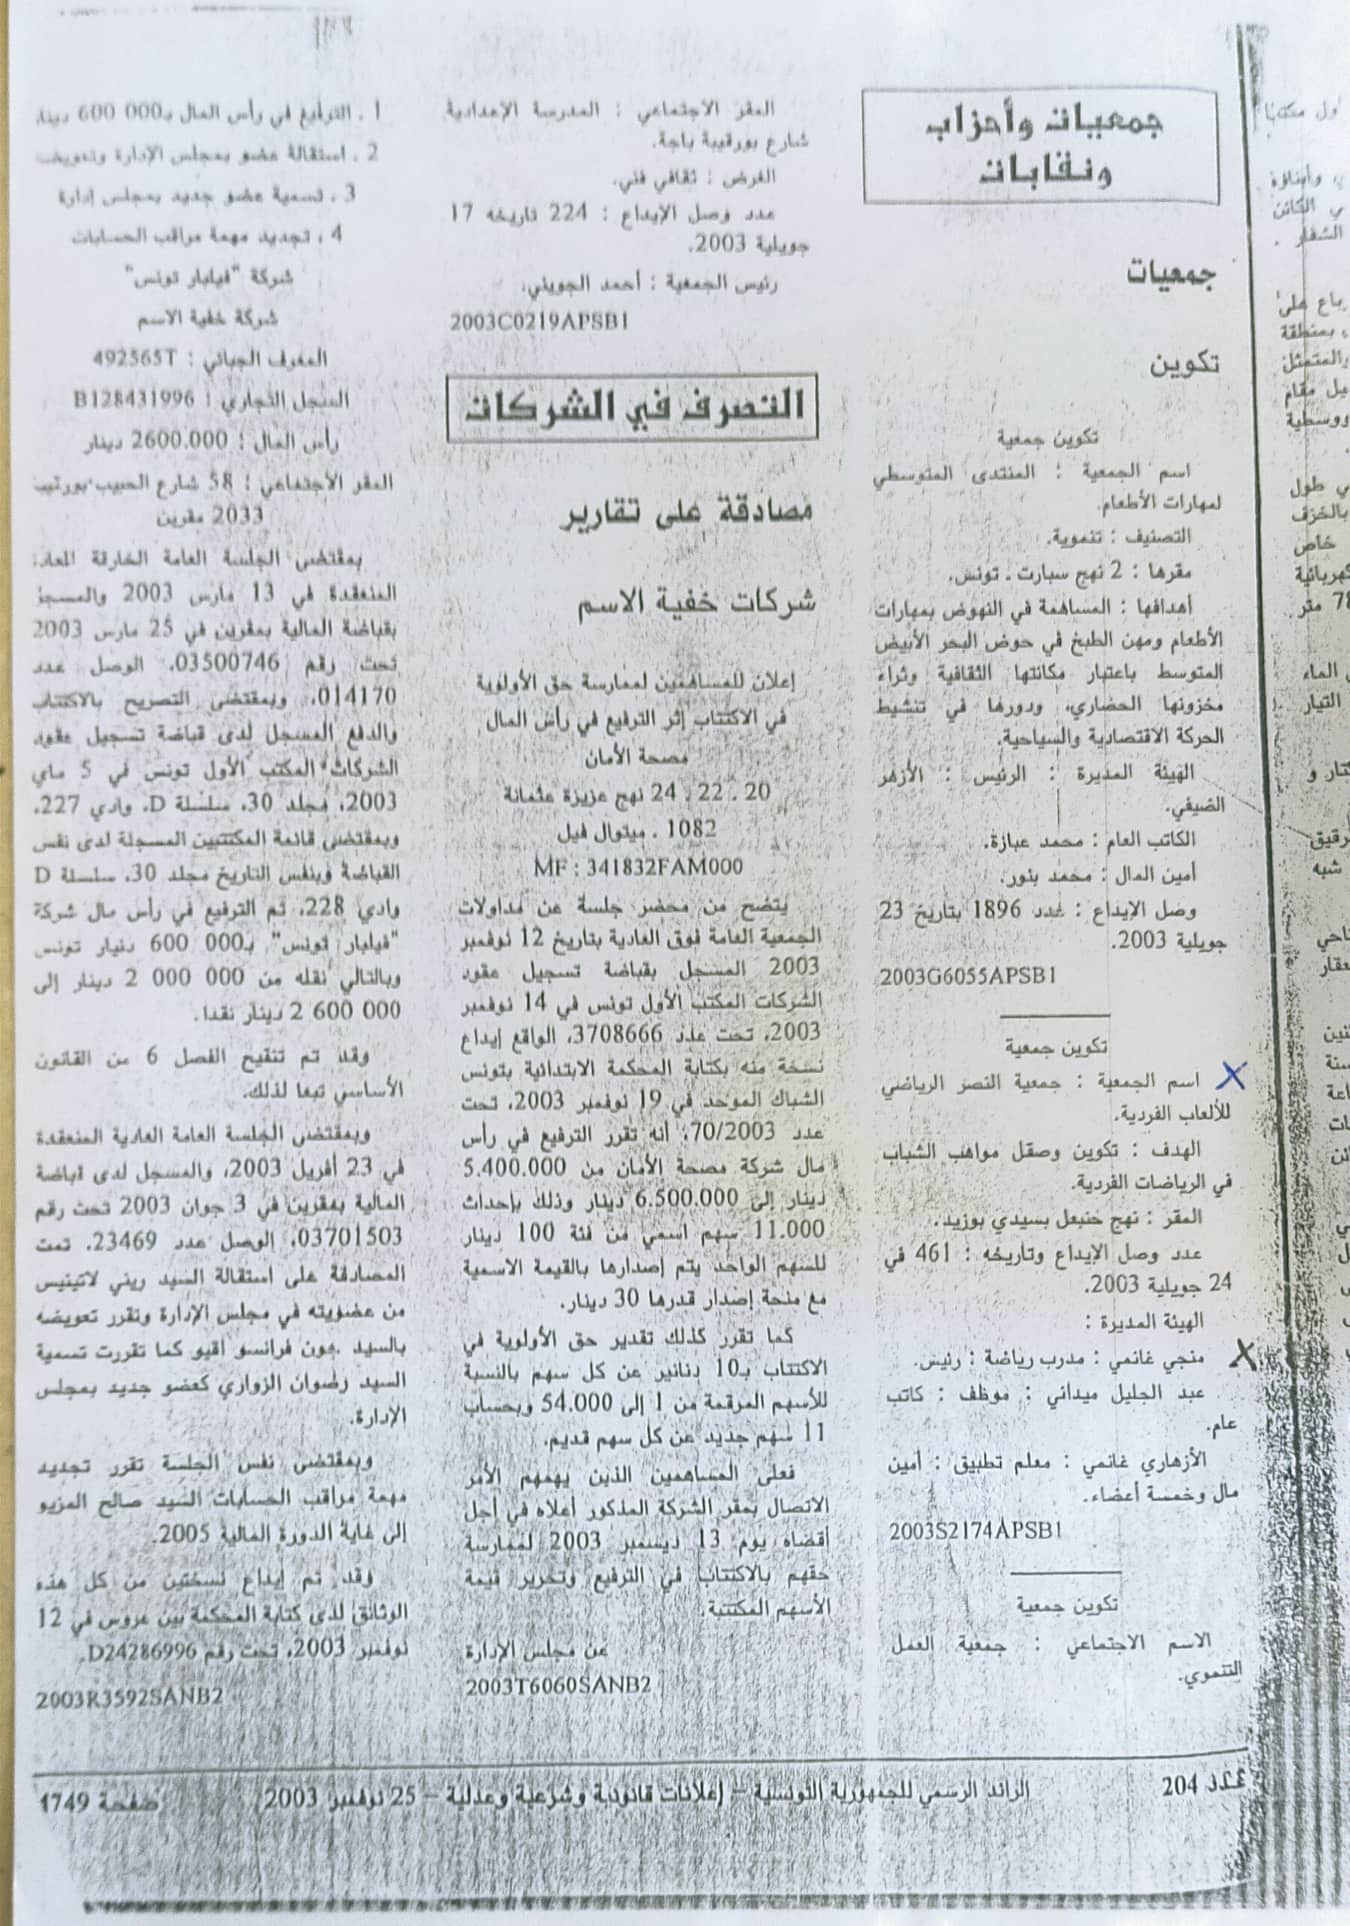 جمعيات وأحزاب
ونقابات
جمعيات
تكوين
تكوين جمعية
اسم الجمعية : المنتدى المتوسطي
لمهارات الأطعام.
التصنيف : تنموية.
مقرها : 2 نهج سبارت ـ تونس.
أهدافها : المساهمة في النهوض بمهارات
الأطعام ومهن الطبخ في حوض البحر الأبيض
المتوسط باعتبار مكانتها الثقافية وثراء
مخزونها الحضاري، ودورها في تنشيط
الحركة الاقتصادية والسياحية.
الهيئة المديرة : الرئيس : الأزهر
الضيفي.
الكاتب العام : محمد عبازة.
أمين المال : محمد بنور.
وصل الإيداع : عدد 1896 بتاريخ 23
جويلية 2003.
2003G6055APSB1
تكوين جمعية
اسم الجمعية : جمعية النصر الرياضي
للألعاب الفردية.
الهدف : تكوين وصقل مواهب الشباب
في الرياضات الفردية.
المقر : نهج حنبعل بسيدي بوزيد.
عدد وصل الإيداع وتاريخه : 461 في
24 جويلية 2003.
الهيئة المديرة :
منجي غانمي : مدرب رياضة : رئيس.
عبد الجليل ميداني : موظف : كاتب
عام.
الأزهاري غانمي : معلم تطبيق : أمين
مال وخمسة أعضاء.
2003S2174APSB1
تكوين جمعية
الاسم الاجتماعي : جمعية العمل
التنموي.
المقر الاجتماعي : المدرسة الإعدادية
شارع بورقيبة باجة.
الغرض : ثقافي فني.
عدد وصل الإيداع : 224 تاريخه 17
جويلية 2003.
رئيس الجمعية : أحمد الجويني.
2003C0219APSB1
التصرف في الشركات
مصادقة على تقارير
شركات خفية الاسم
إعلان للمساهمين لممارسة حق الأولوية
في الاكتتاب إثر الترفيع في رأس المال
مصحة الأمان
20 ـ 22 ـ 24 نهج عزيزة عثمانة
1082 ـ ميتوال فيل
MF : 341832FAM000
يتضح من محضر جلسة عن مداولات
الجمعية العامة فوق العادية بتاريخ 12 نوفمبر
2003 المسجل بقباضة تسجيل عقود
الشركات المكتب الأول تونس في 14 نوفمبر
2003، تحت عدد 3708666، الواقع إيداع
نسخة منه بكتابة المحكمة الابتدائية بتونس
الشباك الموحد في 19 نوفمبر 2003، تحت
عدد 70/2003، أنه تقرر الترفيع في رأس
مال شركة مصحة الأمان من 5.400.000
دينار إلى 6.500.000 دينار وذلك بإحداث
11.000 سهم اسمي من فئة 100 دينار
للسهم الواحد يتم إصدارها بالقيمة الاسمية
مع منحة إصدار قدرها 30 دينار.
كما تقرر كذلك تقدير حق الأولوية في
الاكتتاب بـ10 دنانير عن كل سهم بالنسبة
للأسهم المرقمة من 1 إلى 54.000 وبحساب
11 سهم جديد عن كل سهم قديم.
فعلى المساهمين الذين يهمهم الأمر
الاتصال بمقر الشركة المذكور أعلاه في أجل
أقصاه يوم 13 ديسمبر 2003 لممارسة
حقهم بالاكتتاب في الترفيع وتحرير قيمة
الأسهم المكتتبة.
عن مجلس الإدارة
2003T6060SANB2
1 ـ الترفيع في رأس المال بـ000 600 دينار
2 ـ استقالة عضو بمجلس الإدارة وتعويضه
3 ـ تسمية عضو جديد بمجلس إدارة
4 ـ تجديد مهمة مراقب الحسابات
شركة "فيلبار تونس"
شركة خفية الاسم
المعرف الجبائي : 492565T
السجل التجاري : B128431996
رأس المال : 2600.000 دينار
المقر الاجتماعي : 58 شارع الحبيب بورقيبة
2033 مقرين
بمقتضى الجلسة العامة الخارقة للعادة
المنعقدة في 13 مارس 2003 والمسجل
بقباضة المالية بمقرين في 25 مارس 2003
تحت رقم 03500746، الوصل عدد
014170، وبمقتضى التصريح بالاكتتاب
والدفع المسجل لدى قباضة تسجيل عقود
الشركات المكتب الأول تونس في 5 ماي
2003، مجلد 30، سلسلة D، وادي 227،
وبمقتضى قائمة المكتتبين المسجلة لدى نفس
القباضة وبنفس التاريخ مجلد 30، سلسلة D
وادي 228، تم الترفيع في رأس مال شركة
"فيلبار تونس" بـ000 600 دينار تونس
وبالتالي نقله من 000 000 2 دينار إلى
000 600 2 دينار نقدا.
وقد تم تنقيح الفصل 6 من القانون
الأساسي تبعا لذلك.
وبمقتضى الجلسة العامة العادية المنعقدة
في 23 أفريل 2003، والمسجل لدى قباضة
المالية بمقرين في 3 جوان 2003 تحت رقم
03701503، الوصل عدد 23469، تمت
المصادقة على استقالة السيد ريني لاتينيس
من عضويته في مجلس الإدارة وتقرر تعويضه
بالسيد جون فرانسو أقيو كما تقررت تسمية
السيد رضوان الزواري كعضو جديد بمجلس
الإدارة.
وبمقتضى نفس الجلسة تقرر تجديد
مهمة مراقب الحسابات السيد صالح المزيو
إلى غاية الدورة المالية 2005.
وقد تم إيداع نسختين من كل هذه
الوثائق لدى كتابة المحكمة ببن عروس في 12
نوفمبر 2003، تحت رقم D24286996.
2003R3592SANB2
عدد 204
الرائد الرسمي للجمهورية التونسية – إعلانات قانونية وشرعية وعدلية – 25 نوفمبر 2003
صفحة 1749